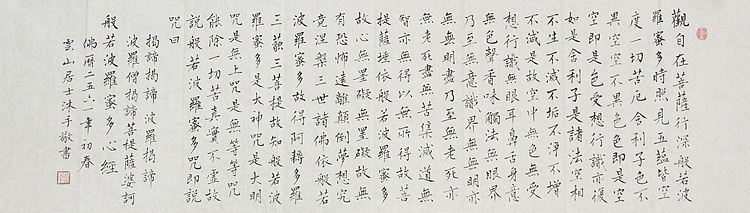 觀自在菩薩行深般若波
羅蜜多時照見五蘊皆空
度一切苦厄舍利子色不
異空空不異色色即是空
空即是色受想行識亦復
如是舍利子是諸法空相
不生不滅不垢不淨不增
不減是故空中無色無受
想行識無眼耳鼻舌身意
無色聲香味觸法無眼界
乃至無意識界無無明亦
無無明盡乃至無老死亦
無老死盡無苦集滅道無
智亦無得以無所得故菩
提薩埵依般若波羅蜜多
故心無罣礙無罣礙故無
有恐怖遠離顛倒夢想究
竟涅槃三世諸佛依般若
波羅蜜多故得阿耨多羅
三藐三菩提故知般若波
羅蜜多是大神咒是大明
咒是無上咒是無等等咒
能除一切苦真實不虛故
說般若波羅蜜多咒即說
咒曰
揭諦揭諦波羅揭諦
波羅僧揭諦菩提薩婆訶
般若波羅蜜多心經
佛曆二五六一年初春
雲山居士沐手敬書